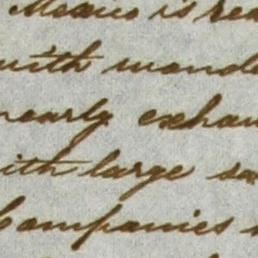 Mexico is rea
with wonde
nearly exhau
ith large sa
Companies